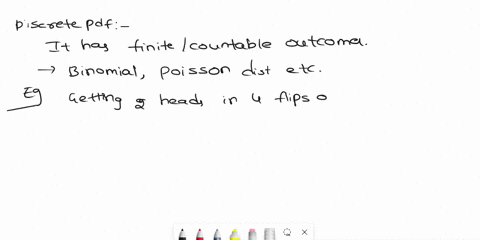 Discrete pdf:-
It has finite/countable outcomes.
→ Binomial, poisson dist etc.
Eg Getting 2 heads in 4 flips o